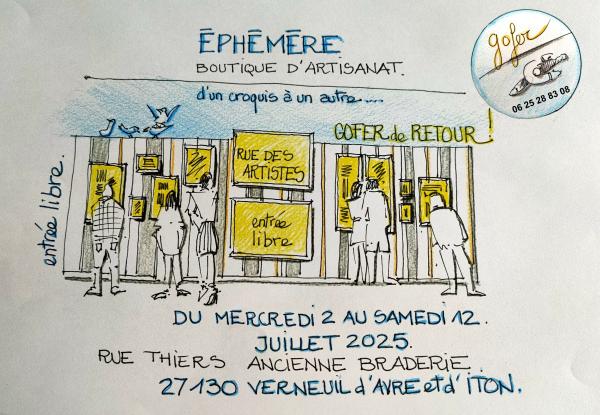 ÉPHÉMÈRE
BOUTIQUE D'ARTISANAT.
gofer
06 25 28 83 08
d'un croquis à un autre....
GOFER de RETOUR
RUE DES
ARTISTES
entrée
libre
entrée libre.
DU MERCREDI 2 AU SAMEDI 12.
JUILLET 2025.
RUE THIERS ANCIENNE BRADERIE.
27130 VERNEUIL d'AVRE et d'ITON.